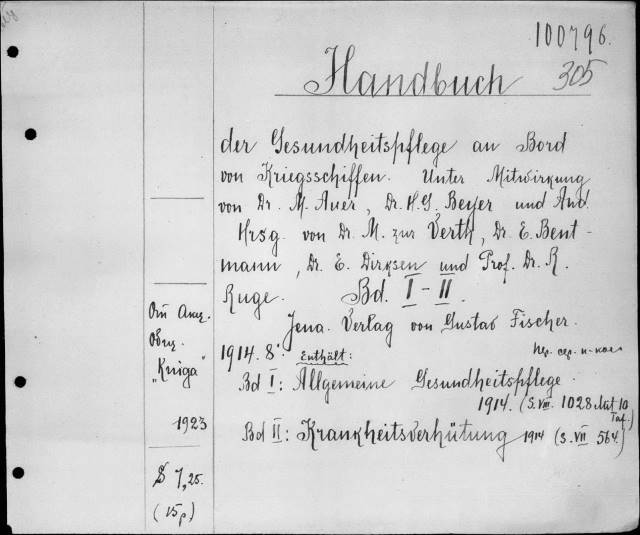 100796.
Handbuch 305
der Gesundheitspflege an Bord
von Kriegsschiffen. Unter Mitwirkung
von Dr. M. Auer, Dr. H. G. Beyer und And.
Hrsg. von Dr. M. zur Verth, Dr. E. Bent-
mann, Dr. E. Dirksen und Prof. Dr. R.
Ruge. Bd. I-II.
Jena. Verlag von Gustav Fischer.
1914. 8°. Enthält:
Bd I: Allgemeine Gesundheitspflege.
1914. (S. VIII. 1028. Mit 10
Taf.)
Bd II: Krankheitsverhütung 1914 (S. VII 564.)
"Kniga"
1923
$ 7,25.
(15 p)